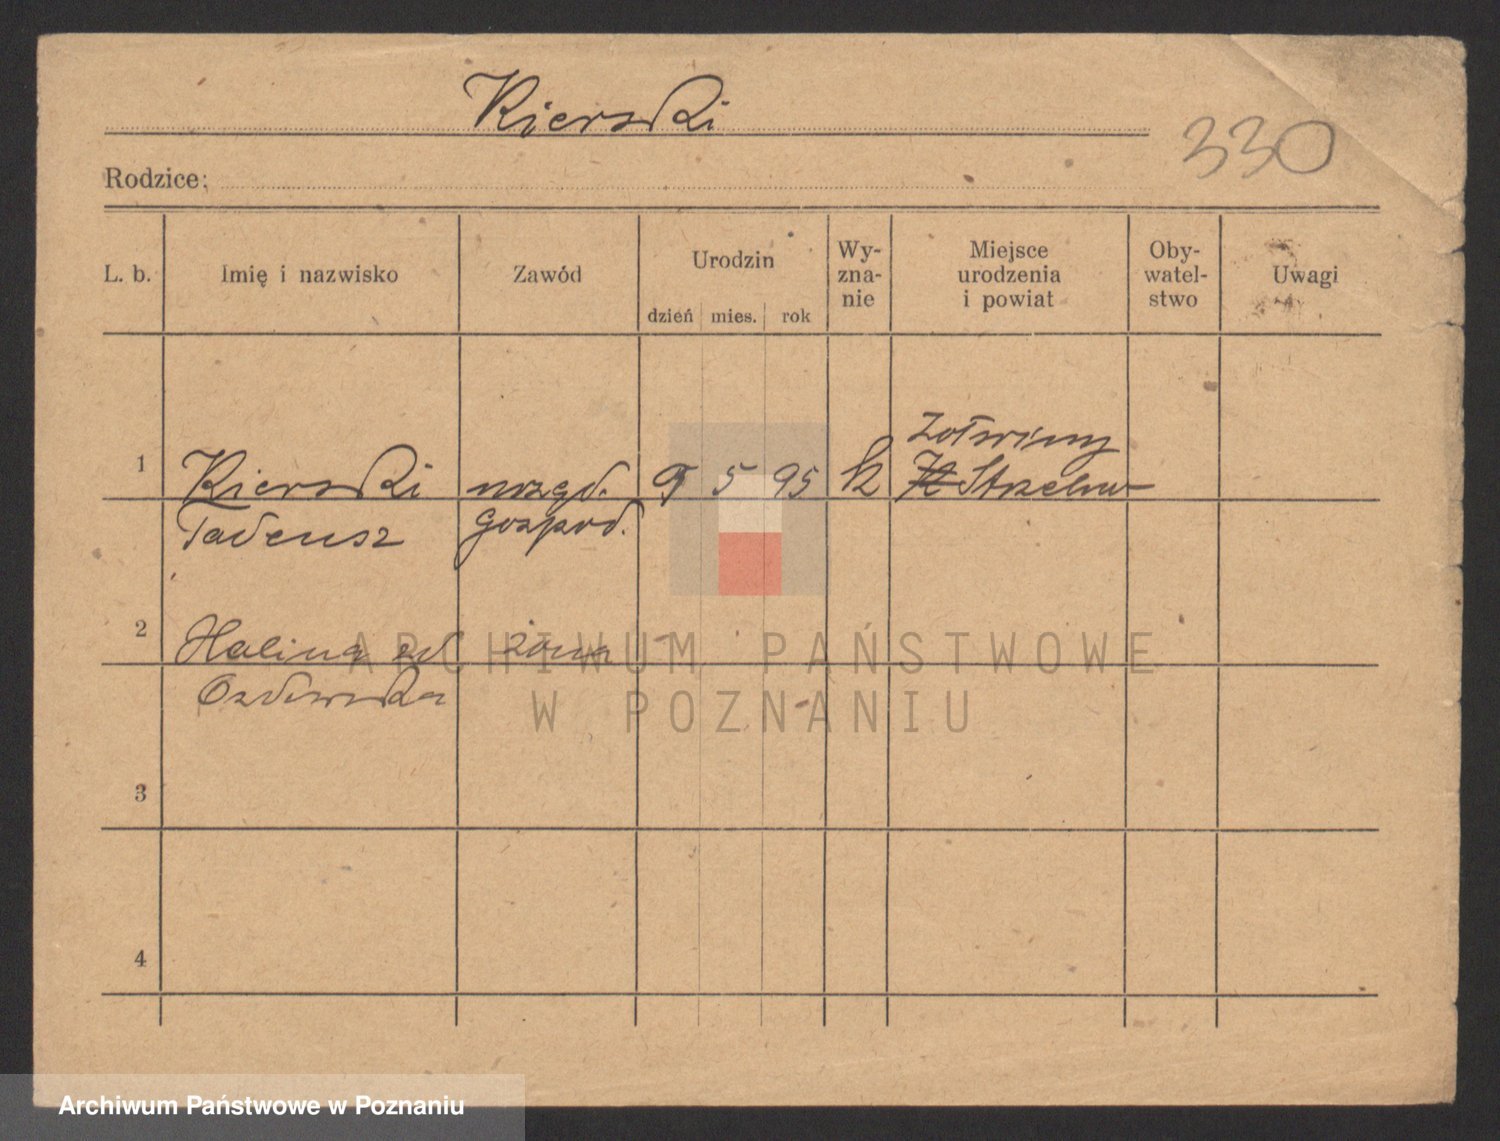 Kierski
330
Rodzice:
L. b. Imię i nazwisko Zawód Urodzin Wy-zna-nie Miejsce urodzenia i powiat Oby-watel-stwo Uwagi
dzień mies. rok
1 Kierski 9 5 95 k Strzelno
Tadeusz gospod.
2 Halina żona
3
4
ARCHIWUM PAŃSTWOWE
W POZNANIU
Archiwum Państwowe w Poznaniu